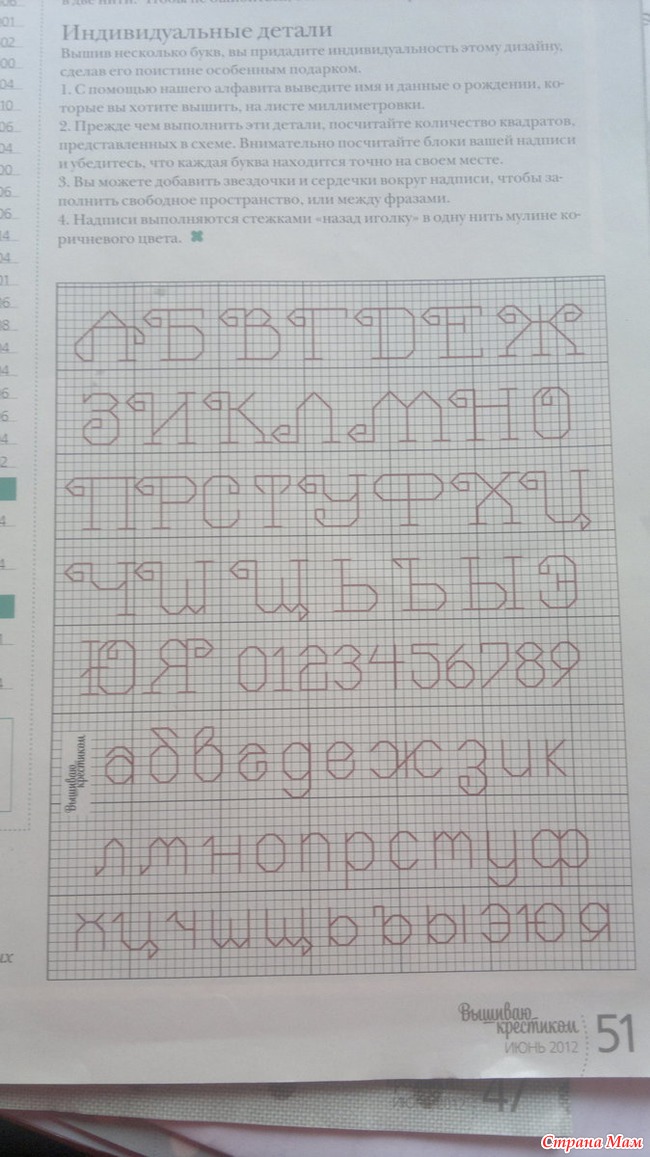 Индивидуальные детали
Вышив несколько букв, вы придадите индивидуальность этому дизайну,
сделав его поистине особенным подарком.
1. С помощью нашего алфавита выведите имя и данные о рождении, ко-
торые вы хотите вышить, на листе миллиметровки.
2. Прежде чем выполнить эти детали, посчитайте количество квадратов,
представленных в схеме. Внимательно посчитайте блоки вашей надписи
и убедитесь, что каждая буква находится точно на своем месте.
3. Вы можете добавить звездочки и сердечки вокруг надписи, чтобы за-
полнить свободное пространство, или между фразами.
4. Надписи выполняются стежками «назад иголку» в одну нить мулине ко-
ричневого цвета.
А Б В Г D Е Ж
З И К Л М Н О
П Р С Т У Ф Х Ц
Ч Ш Щ Ь Ъ Ы Э
Ю Я 0 1 2 3 4 5 6 7 8 9
Вышиваю крестиком
а б в г д е ж з и к
л м н о п р с т у ф
х ц ч ш щ ь ъ ы э ю я
Вышиваю
крестиком
ИЮНЬ 2012
51
47
Страна Мам